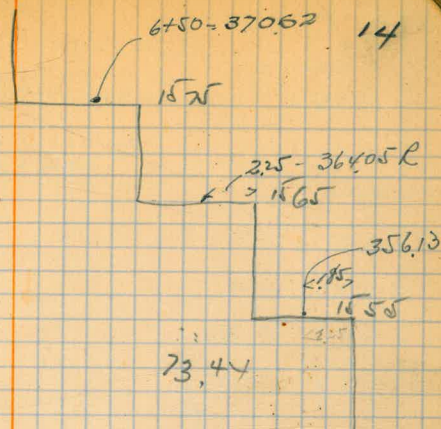 6+50 = 370.62
14
1575
2.25 - 364.05 R
1565
356.13
<1.85>
1555
73.44